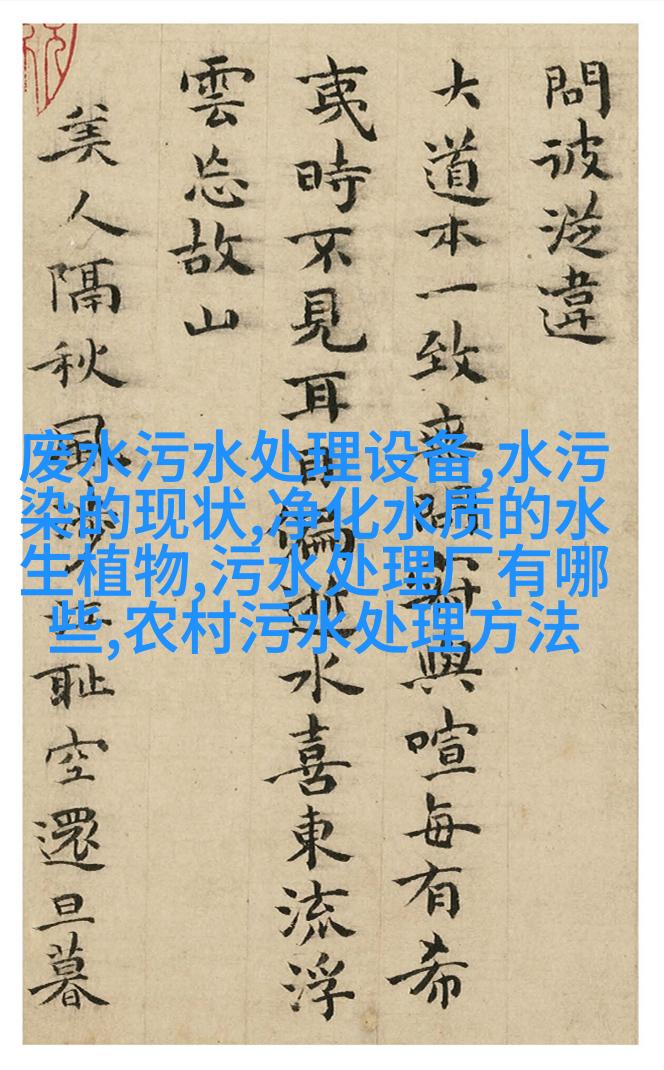 問彼從違
大道本一致與喧每有希
夷時不見耳目水喜東流浮
雲忘故山
美人隔秋風耻空還旦暮
废水污水处理设备,水污
染的现状,净化水质的水
生植物,污水处理厂有哪
些,农村污水处理方法